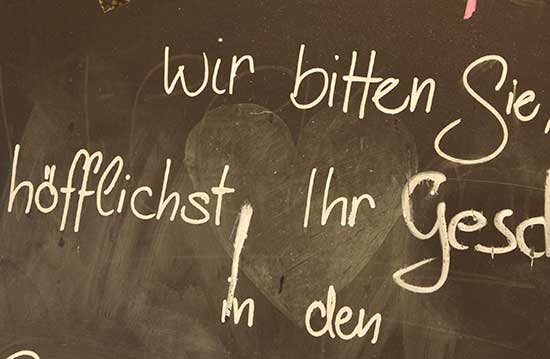 Wir bitten Sie,
höfflichst, Ihr Gesch
in den